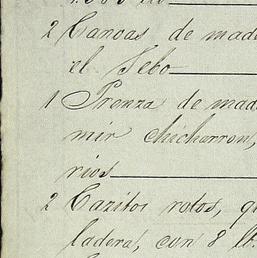 2 Canoas de mad
el Sebo
1 Prenza de mad
mir chicharron,
rios
2 Cazitos rotos, q
ladera, con 8 lt.